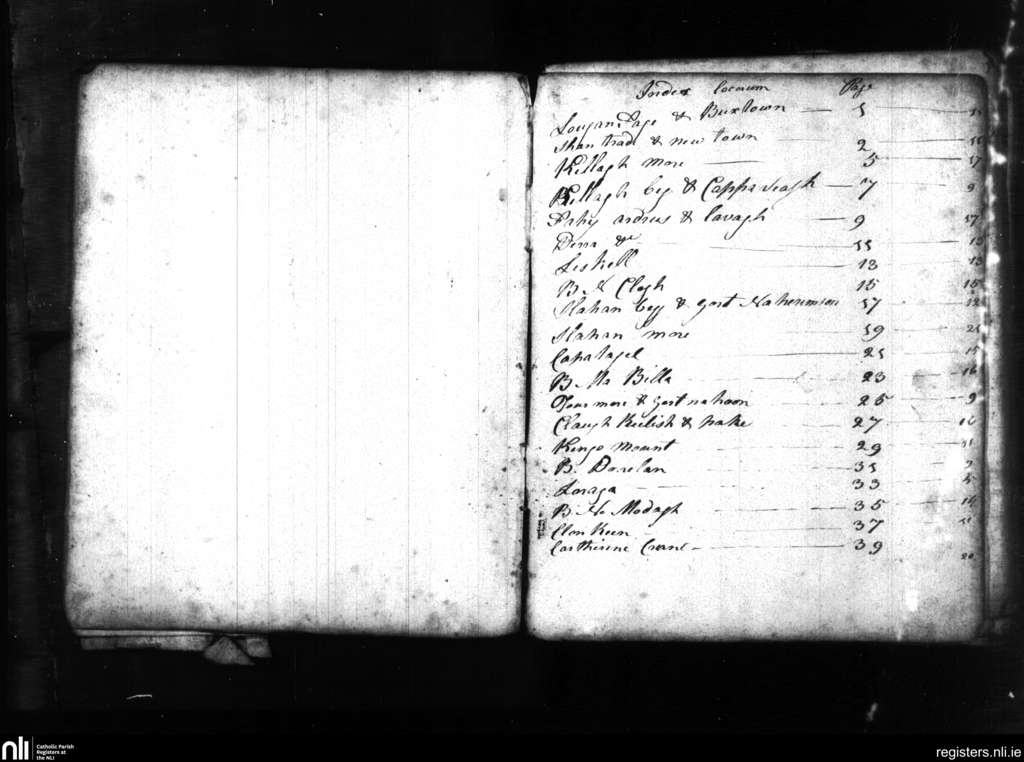 Index locorum Page
& Buxtown 1
Shantrade & new town 2
Killagh more 5 17
Killagh beg & Cappaveagh 7 9
Fahy andrus & Cavagh 9 17
Derra 11 13
Leskell 13 13
B. N Clogh 15 15
Slahan beg & gort 17 12
Slahan more 19 21
Capatagel 21 15
B. Na Billa 23 16
more & gort nahoon 25 9
Claugh Keelish & pake 27 16
Kings mount 29 11
B. Dorelan 31
Loraga 33
B. No Modagh 35 14
Clon Keen 37 11
Cartherine Crans 39 20
nli
Catholic Parish
Registers at
the NLI
registers.nli.ie